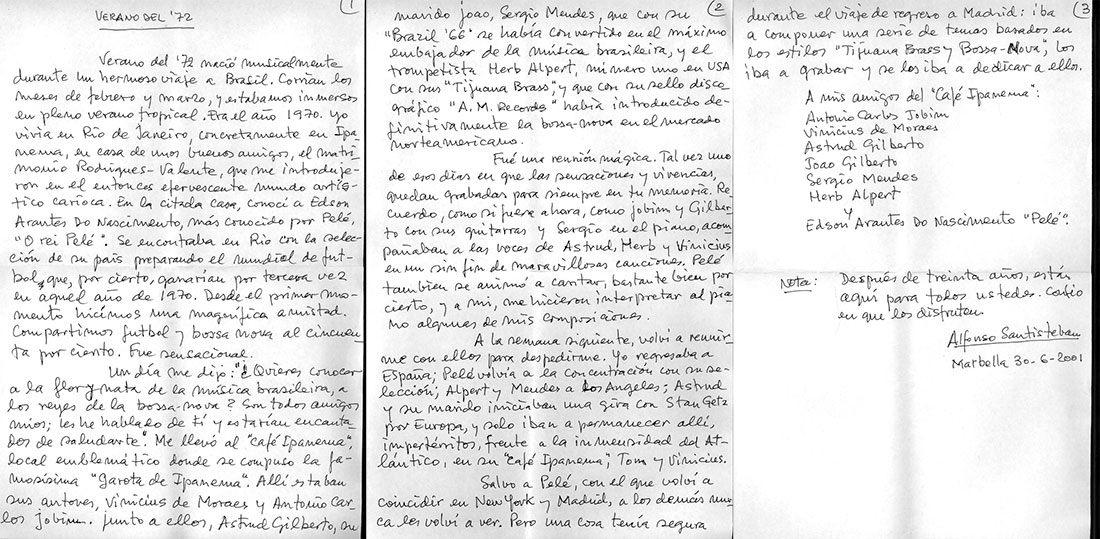 1
VERANO DEL '72
Verano del '72 nació musicalmente
durante un hermoso viaje a Brasil. Corrían los
meses de febrero y marzo, y estabamos inmersos
en pleno verano tropical. Era el año 1970. Yo
vivia en Río de Janeiro, concretamente en Ipa-
nema, en casa de unos buenos amigos, el matri-
monio Rodrigues-Valente, que me introduje-
ron en el entonces efervescente mundo artís-
tico carioca. En la citada casa, conocí a Edson
Arantes Do Nascimento, más conocido por Pelé,
"O rei Pelé". Se encontraba en Río con la selec-
ción de su país preparando el mundial de fut-
bol, que, por cierto, ganarían por tercera vez
en aquel año de 1970. Desde el primer mo-
mento hicimos una magnífica amistad.
Compartimos futbol y bossa nova al cincuen-
ta por ciento. Fue sensacional.
Un día me dijo: "¿Quieres conocer
a la flor y nata de la música brasileira, a
los reyes de la bossa-nova? Son todos amigos
mios; les he hablado de tí y estarían encanta-
dos de saludarte". Me llevó al "Café Ipanema",
local emblemático donde se compuso la fa-
mosísima "Garota de Ipanema". Allí estaban
sus autores, Vinicius de Moraes y Antonio Car-
los Jobim. Junto a ellos, Astrud Gilberto, su
2
marido Joao, Sergio Mendes, que con su
"Brazil '66" se había convertido en el máximo
embajador de la música brasileira, y el
trompetista Herb Alpert, número uno en USA
con sus "Tijuana Brass", y que con su sello disco
gráfico "A.M. Records" había introducido de-
finitivamente la bossa-nova en el mercado
norteamericano.
Fué una reunión mágica. Tal vez uno
de esos días en que las sensaciones y vivencias,
quedan grabadas para siempre en tu memoria. Re
cuerdo, como si fuera ahora, como Jobim y Gilber-
to con sus guitarras y Sergio en el piano, acom
pañaban a las voces de Astrud, Herb y Vinicius
en un sin fin de maravillosas canciones. Pelé
tambien se animó a cantar, bastante bien por
cierto, y a mi, me hicieron interpretar al pia-
no algunas de mis composiciones.
A la semana siguiente, volví a reunir
me con ellos para despedirme. Yo regresaba a
España; Pelé volvía a la concentración con su se-
lección; Alpert y Mendes a Los Angeles; Astrud
y su marido iniciaban una gira con Stan Getz
por Europa, y solo iban a permanecer allí,
impertérritos, frente a la inmensidad del At-
lántico, en su "Café Ipanema", Tom y Vinicius.
Salvo a Pelé, con el que volví a
coincidir en New York y Madrid, a los demás nun
ca los volví a ver. Pero una cosa tenía segura
3
durante el viaje de regreso a Madrid: iba
a componer una serie de temas basados en
los estilos "Tijuana Brass y Bossa-Nova", los
iba a grabar y se los iba a dedicar a ellos.
A mis amigos del "Café Ipanema":
Antonio Carlos Jobim
Vinicius de Moraes
Astrud Gilberto
Joao Gilberto
Sergio Mendes
Herb Alpert
y
Edson Arantes Do Nascimento "Pelé".
Nota: Después de treinta años, están
aquí para todos ustedes. Confío
en que los disfruten.
Alfonso Santisteban
Marbella 30-6-2001